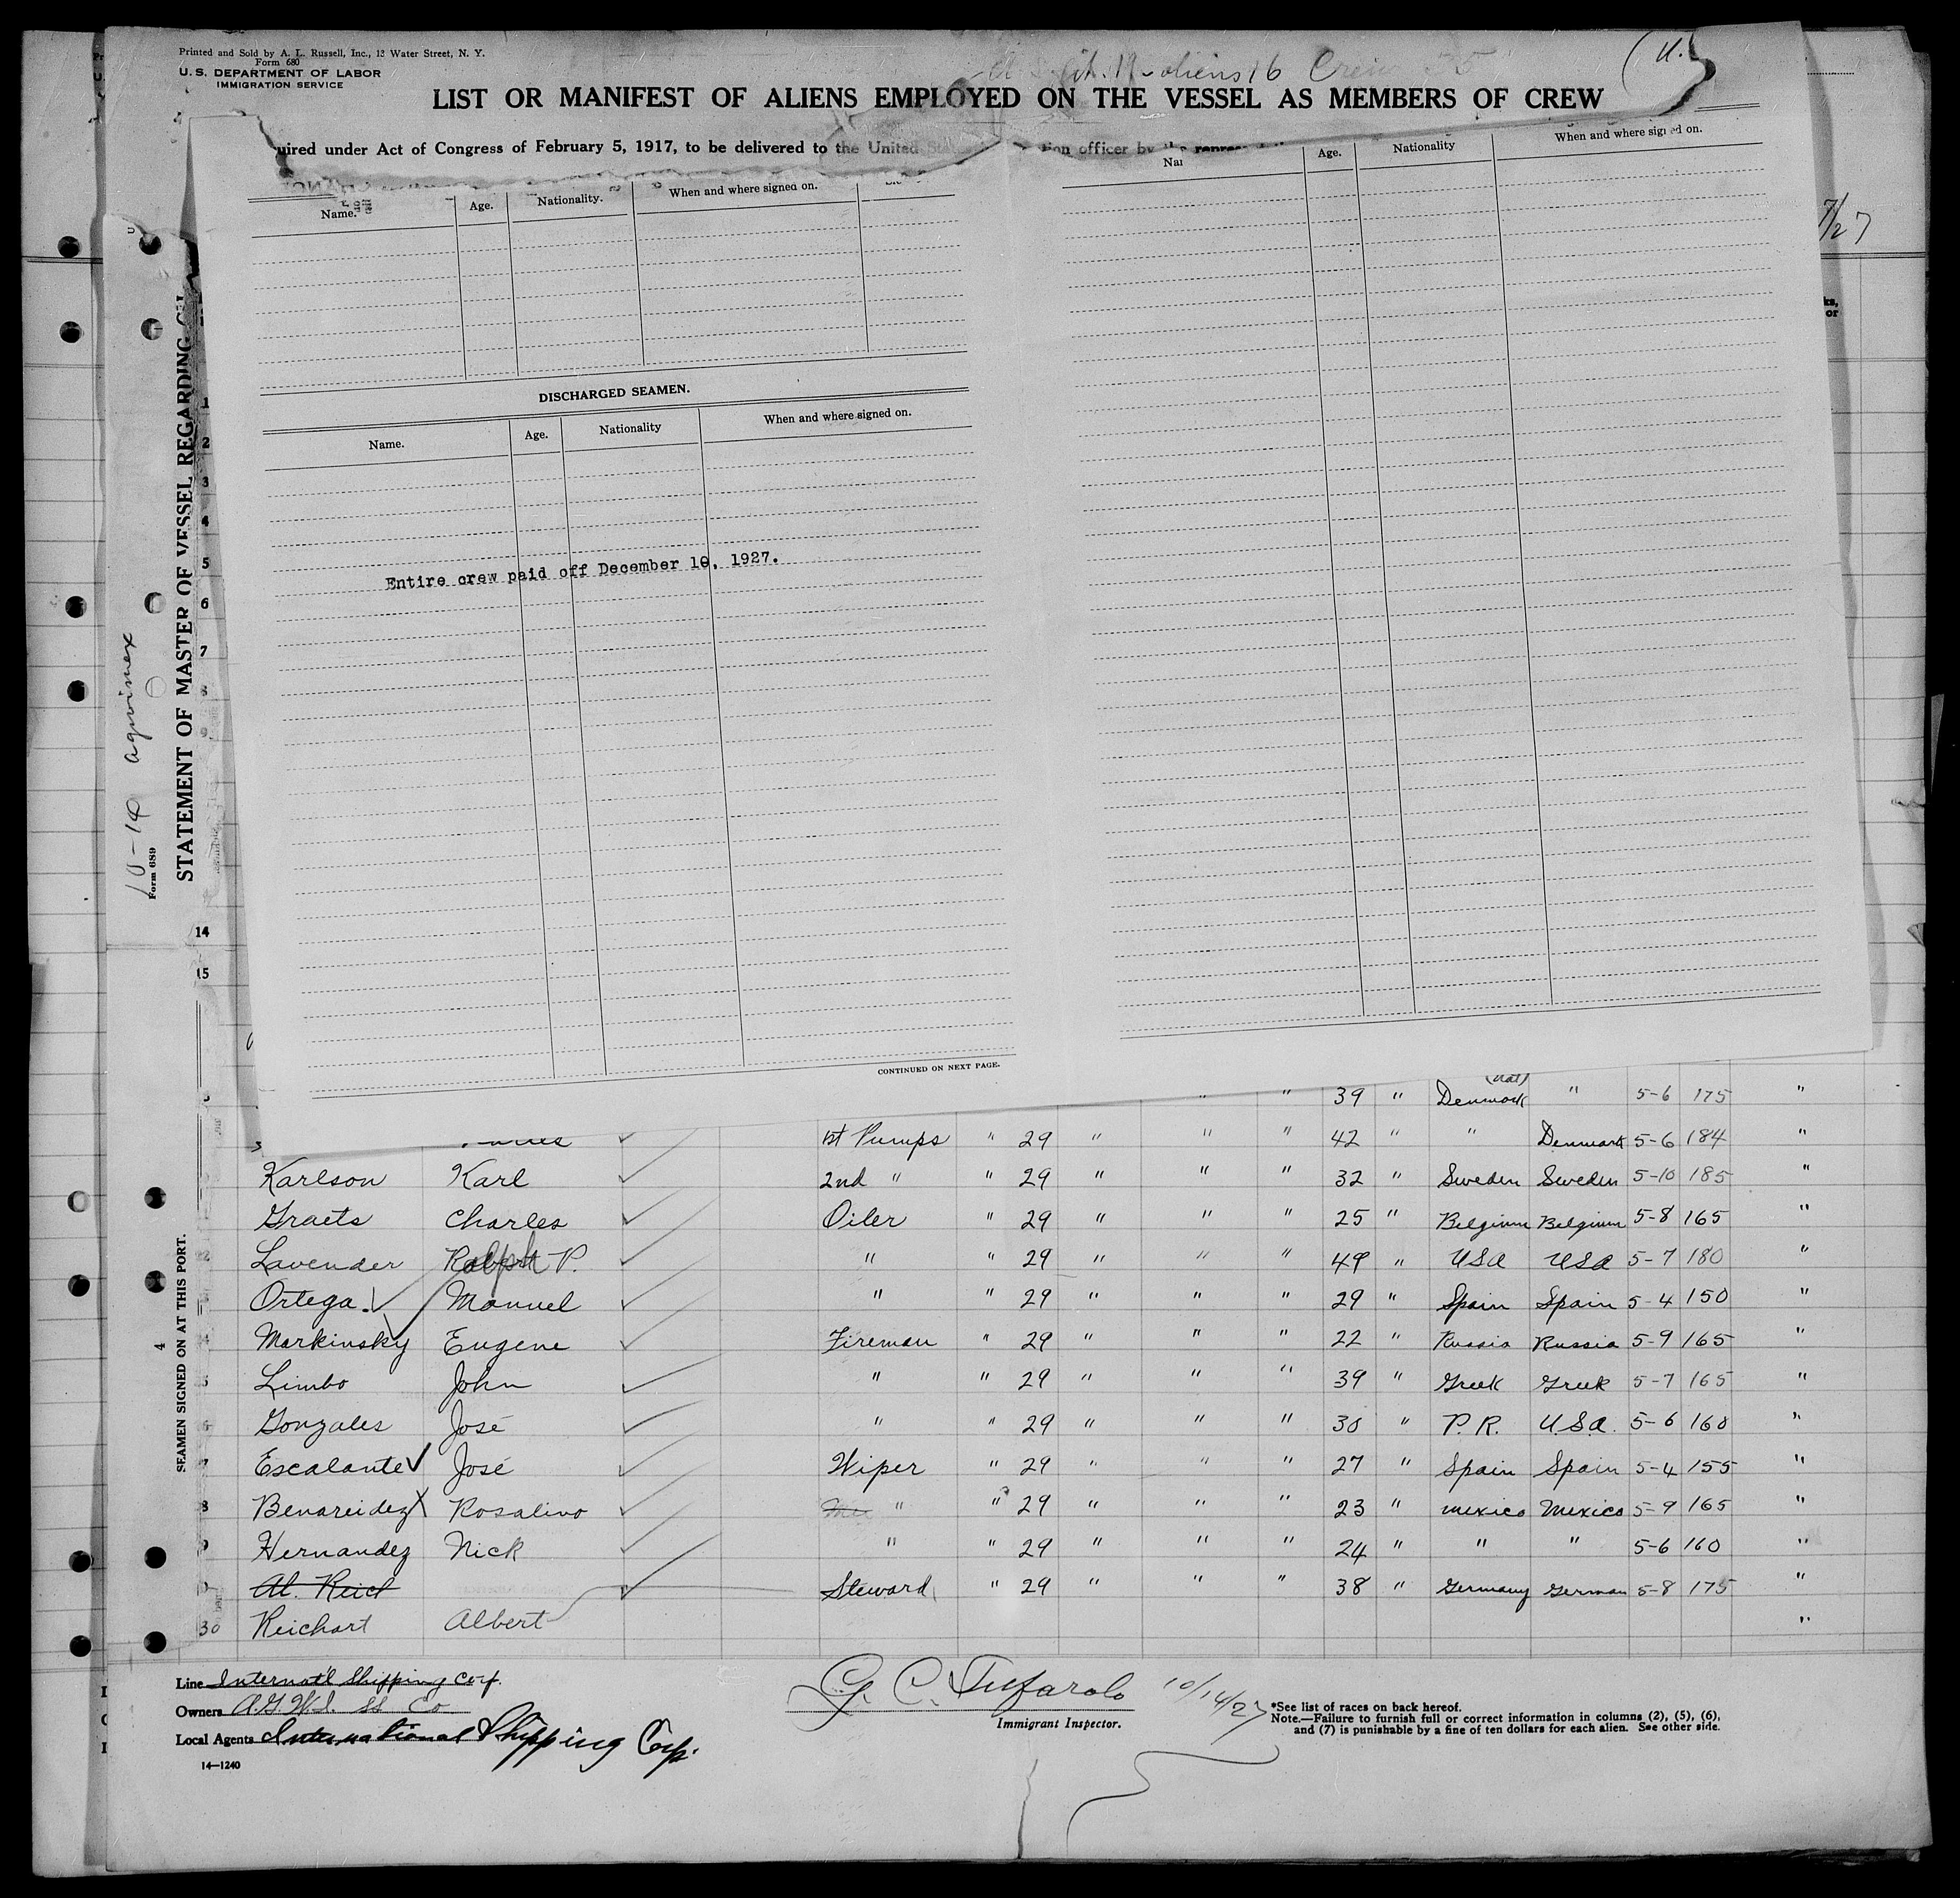 Printed and Sold by A. L. Russell, Inc., 13 Water Street, N. Y.
Form 680
U. S. DEPARTMENT OF LABOR
IMMIGRATION SERVICE
aliens 16 Crew
(U.
LIST OR MANIFEST OF ALIENS EMPLOYED ON THE VESSEL AS MEMBERS OF CREW
uired under Act of Congress of February 5, 1917, to be delivered to the United States
officer by the
7/27
Name. Age. Nationality. When and where signed on.
Age. Nationality When and where signed on.
DISCHARGED SEAMEN.
Name. Age. Nationality When and where signed on.
Entire crew paid off December 10, 1927.
CONTINUED ON NEXT PAGE.
10-14 Agwimex
Form 689
STATEMENT OF MASTER OF VESSEL REGARDING
SEAMEN SIGNED ON AT THIS PORT.
4
1
2
3
4
5
6
7
8
9
14
15
" " 39 " Denmark (Nat) " 5-6 175 "
1st Pumps " 29 " " " 42 " " Denmark 5-6 184 "
Karlson Karl 2nd " " 29 " " " 32 " Sweden Sweden 5-10 185 "
Graets Charles Oiler " 29 " " " 25 " Belgium Belgium 5-8 165 "
Lavender Ralph P. " " 29 " " " 49 " USA USA 5-7 180 "
Ortega Manuel " " 29 " " " 29 " Spain Spain 5-4 150 "
Markinsky Eugene Fireman " 29 " " " 22 " Russia Russia 5-9 165 "
Limbo John " " 29 " " " 39 " Greek Greek 5-7 165 "
Gonzales José " " 29 " " " 30 " P.R. U.S.A. 5-6 160 "
Escalante José Wiper " 29 " " " 27 " Spain Spain 5-4 155 "
8 Benareidez Rosalino " " 29 " " " 23 " Mexico Mexico 5-9 165 "
9 Hernandez Nick " " 29 " " " 24 " " " 5-6 160 "
Al. Reich Steward " 29 " " " 38 " Germany German 5-8 175 "
30 Reichart Albert "
Line Internat'l Shipping Corp.
Owners A.G.W.I. SS Co
Local Agents International Shipping Corp.
14—1240
G. C. Tufarolo 10/14/27
Immigrant Inspector.
*See list of races on back hereof.
Note.—Failure to furnish full or correct information in columns (2), (5), (6),
and (7) is punishable by a fine of ten dollars for each alien. See other side.